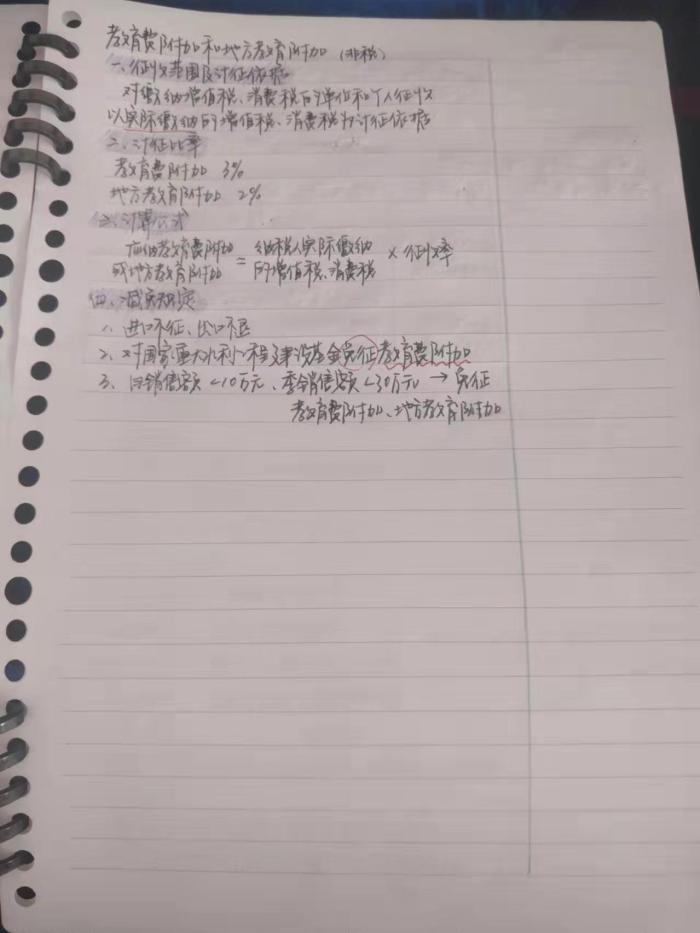 教育费附加和地方教育附加（非税）
一、征收范围及计征依据
对缴纳增值税、消费税的单位和个人征收
以实际缴纳的增值税、消费税为计征依据
二、计征比率
教育费附加 3%
地方教育附加 2%
三、计算公式
应纳教育费附加
或地方教育附加 = 纳税人实际缴纳
的增值税、消费税 × 征收率
四、减免规定
1、进口不征、出口不退
2、对国家重大水利工程建设基金免征教育费附加
3、月销售额<10万元、季销售额<30万元 → 免征
教育费附加、地方教育附加